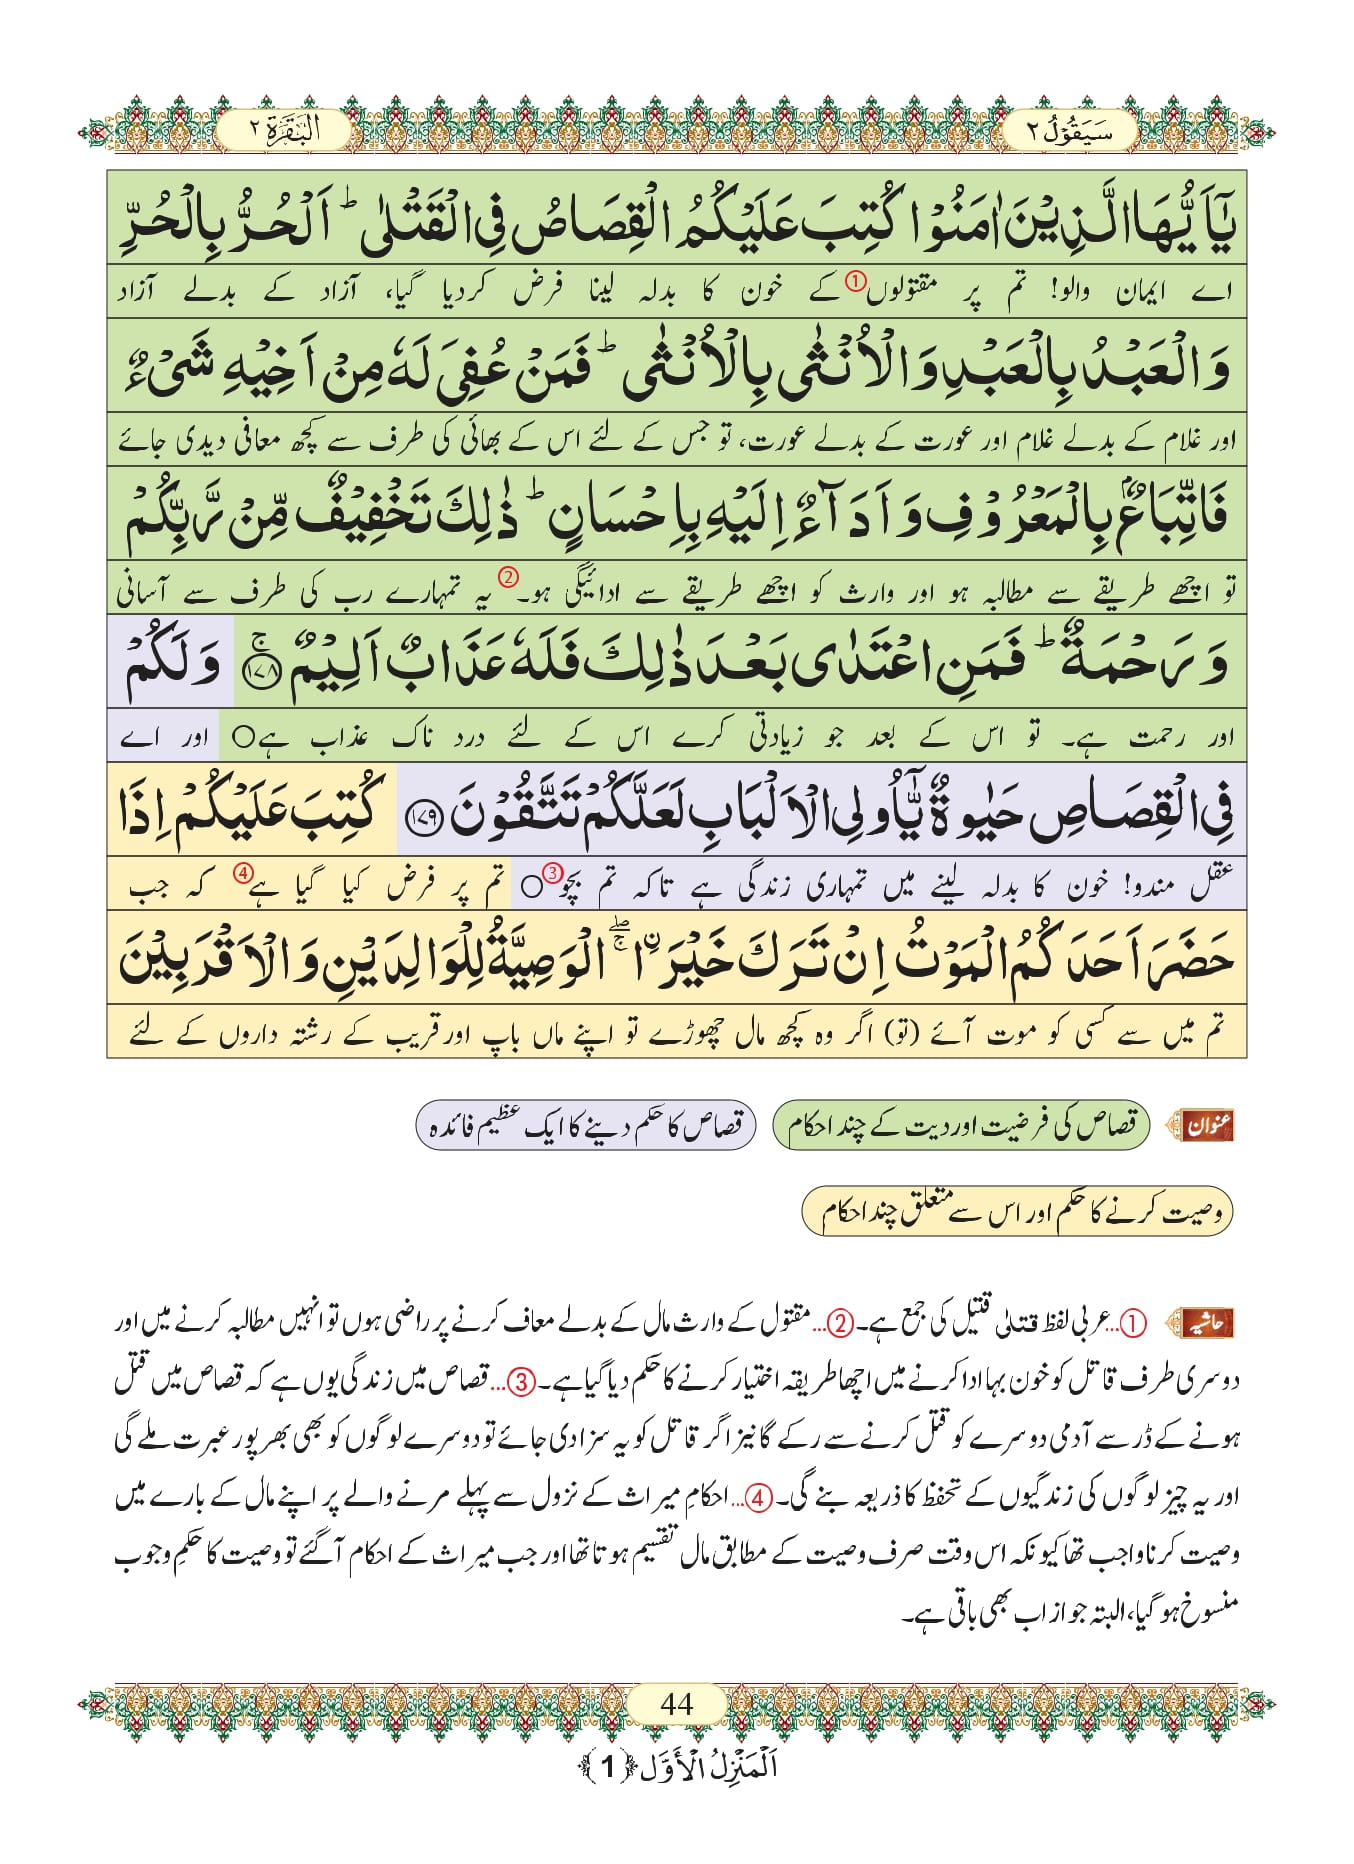 سَيَقُوْلُ ٢
اَلْبَقَرَة ٢
يٰۤاَيُّهَا الَّذِيْنَ اٰمَنُوْا كُتِبَ عَلَيْكُمُ الْقِصَاصُ فِي الْقَتْلٰى ؕ اَلْحُرُّ بِالْحُرِّ
اے ایمان والو! تم پر مقتولوں① کے خون کا بدلہ لینا فرض کردیا گیا، آزاد کے بدلے آزاد
وَالْعَبْدُ بِالْعَبْدِ وَالْاُنْثٰى بِالْاُنْثٰى ؕ فَمَنْ عُفِيَ لَهٗ مِنْ اَخِيْهِ شَيْءٌ
اور غلام کے بدلے غلام اور عورت کے بدلے عورت، تو جس کے لئے اس کے بھائی کی طرف سے کچھ معافی دیدی جائے
فَاتِّبَاعٌۢ بِالْمَعْرُوْفِ وَاَدَآءٌ اِلَيْهِ بِاِحْسَانٍ ؕ ذٰلِكَ تَخْفِيْفٌ مِّنْ رَّبِّكُمْ
تو اچھے طریقے سے مطالبہ ہو اور وارث کو اچھے طریقے سے ادائیگی ہو۔② یہ تمہارے رب کی طرف سے آسانی
وَرَحْمَةٌ ؕ فَمَنِ اعْتَدٰى بَعْدَ ذٰلِكَ فَلَهٗ عَذَابٌ اَلِيْمٌ ۚ﴿۱۷۸﴾ وَلَكُمْ
اور رحمت ہے۔ تو اس کے بعد جو زیادتی کرے اس کے لئے درد ناک عذاب ہے○ اور اے
فِي الْقِصَاصِ حَيٰوةٌ يّٰۤاُولِي الْاَلْبَابِ لَعَلَّكُمْ تَتَّقُوْنَ ﴿۱۷۹﴾ كُتِبَ عَلَيْكُمْ اِذَا
عقل مندو! خون کا بدلہ لینے میں تمہاری زندگی ہے تاکہ تم بچو③○ تم پر فرض کیا گیا ہے④ کہ جب
حَضَرَ اَحَدَكُمُ الْمَوْتُ اِنْ تَرَكَ خَيْرَاۨ ۚۖ الْوَصِيَّةُ لِلْوَالِدَيْنِ وَالْاَقْرَبِيْنَ
تم میں سے کسی کو موت آئے (تو) اگر وہ کچھ مال چھوڑے تو اپنے ماں باپ اور قریب کے رشتہ داروں کے لئے
عنوان قصاص کی فرضیت اور دیت کے چند احکام قصاص کا حکم دینے کا ایک عظیم فائدہ
وصیت کرنے کا حکم اور اس سے متعلق چند احکام
حاشیہ ①...عربی لفظ قتلیٰ قتیل کی جمع ہے۔②...مقتول کے وارث مال کے بدلے معاف کرنے پر راضی ہوں تو انہیں مطالبہ کرنے میں اور
دوسری طرف قاتل کو خون بہا ادا کرنے میں اچھا طریقہ اختیار کرنے کا حکم دیا گیا ہے۔③...قصاص میں زندگی یوں ہے کہ قصاص میں قتل
ہونے کے ڈر سے آدمی دوسرے کو قتل کرنے سے رکے گا نیز اگر قاتل کو یہ سزا دی جائے تو دوسرے لوگوں کو بھی بھرپور عبرت ملے گی
اور یہ چیز لوگوں کی زندگیوں کے تحفظ کا ذریعہ بنے گی۔④...احکامِ میراث کے نزول سے پہلے مرنے والے پر اپنے مال کے بارے میں
وصیت کرنا واجب تھا کیونکہ اس وقت صرف وصیت کے مطابق مال تقسیم ہوتا تھا اور جب میراث کے احکام آگئے تو وصیت کا حکمِ وجوب
منسوخ ہوگیا، البتہ جواز اب بھی باقی ہے۔
44
اَلْمَنْزِلُ الْأَوَّل ﴿1﴾